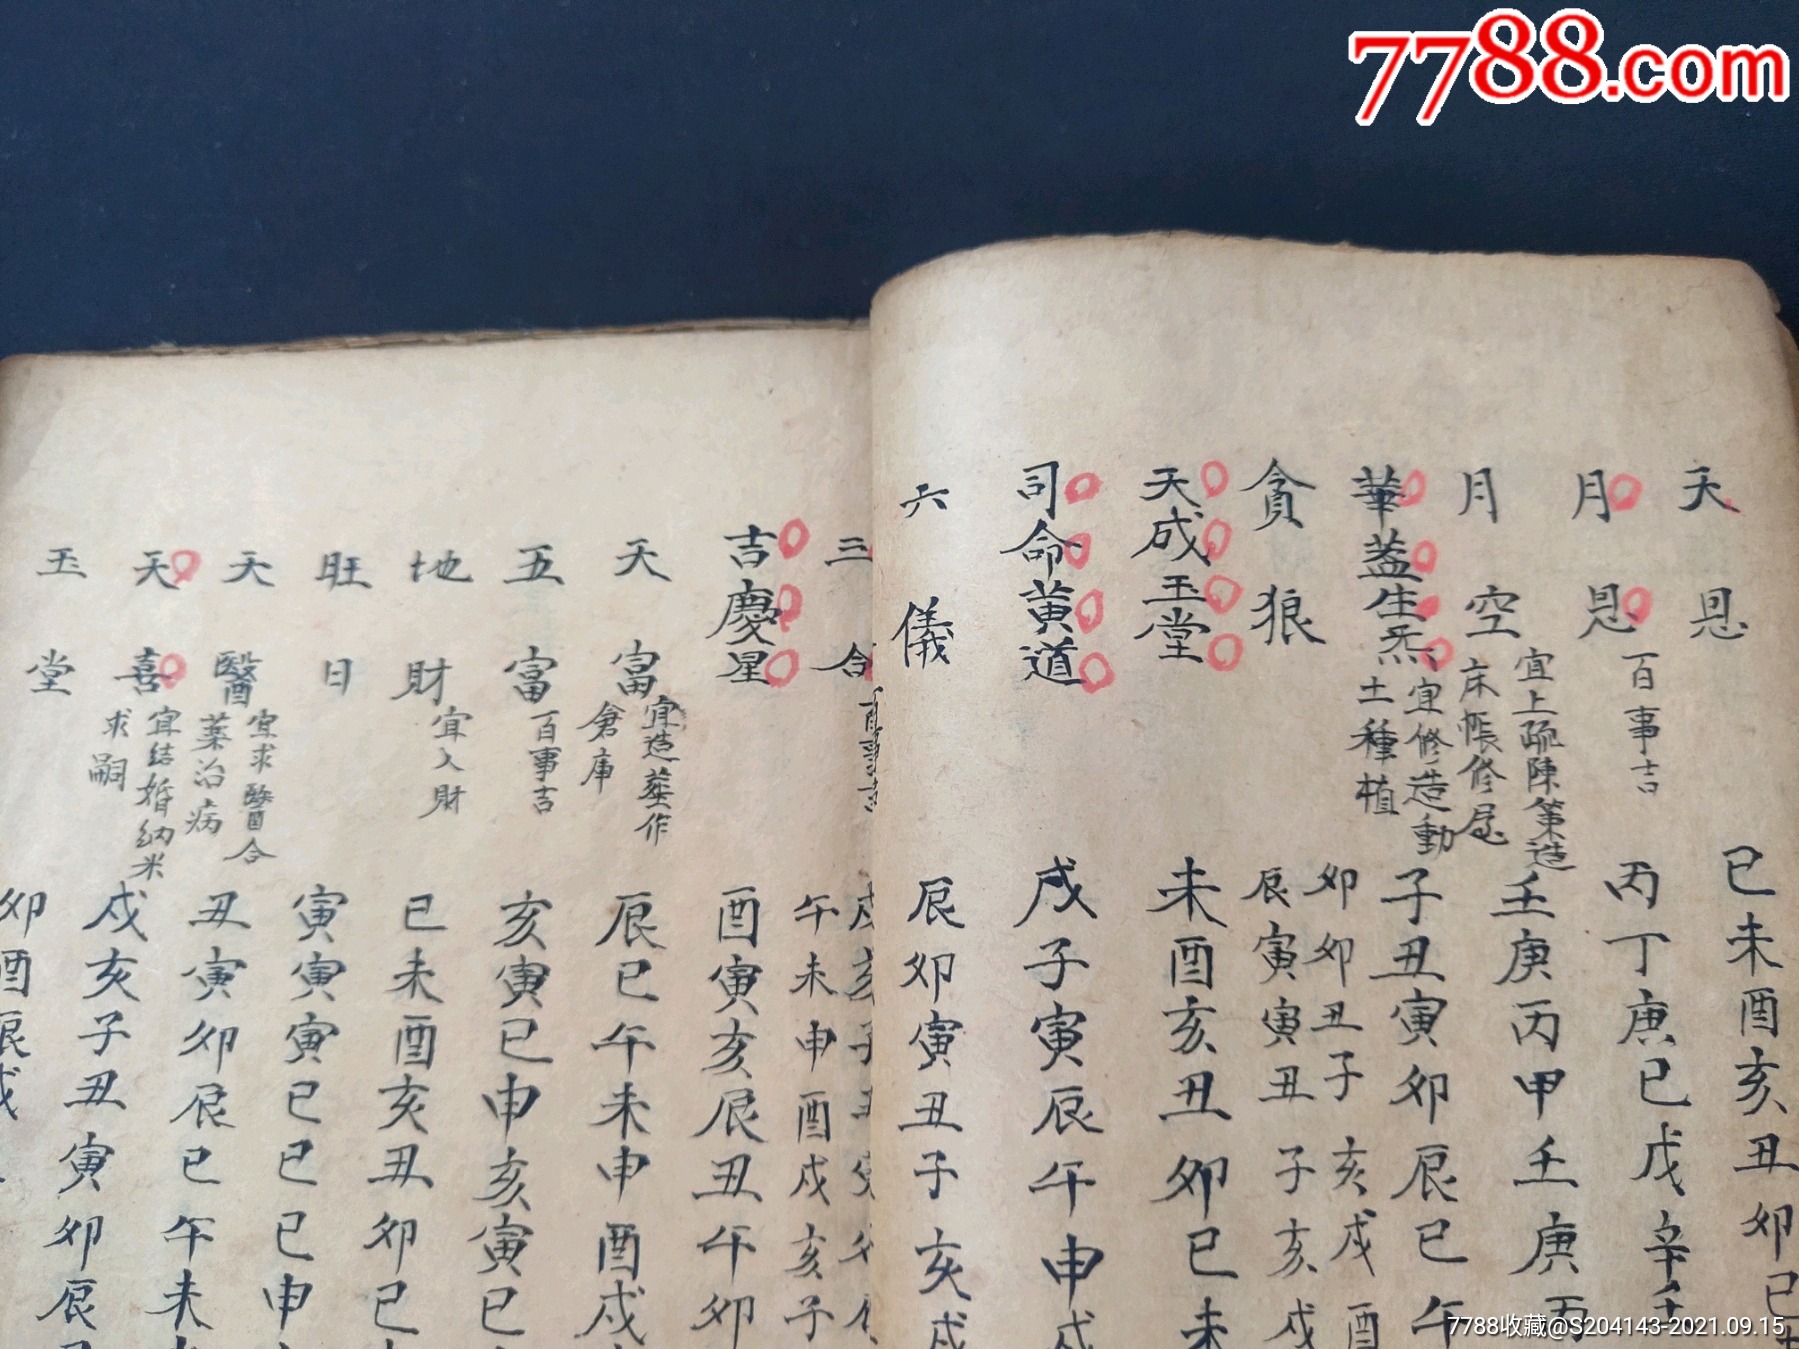 7788.com
天恩 巳未酉亥丑卯巳
月恩 百事吉 丙丁庚己戊辛壬
月空 宜上疏陳策造床帳修屋 壬庚丙甲壬庚丙
華蓋生炁 宜修造動土種植 子丑寅卯辰巳午
貪狼 卯卯丑子亥戌酉
辰寅寅丑子亥戌
天成玉堂 未酉亥丑卯巳未
司命黄道 戌子寅辰午申戌
六儀 辰卯寅丑子亥戌
三合 百事吉 戌亥子丑寅卯
午未申酉戌亥子
吉慶星 酉寅亥辰丑午卯
天富 宜造葬作倉庫 辰巳午未申酉戌
五富 百事吉 亥寅巳申亥寅巳
地財 宜入財 巳未酉亥丑卯巳
旺日 寅寅寅巳巳巳申
天醫 宜求醫合藥治病 丑寅卯辰巳午未
天喜 宜結婚納米求嗣 戌亥子丑寅卯辰
玉堂 卯酉辰戌
7788收藏@S204143-2021.09.15